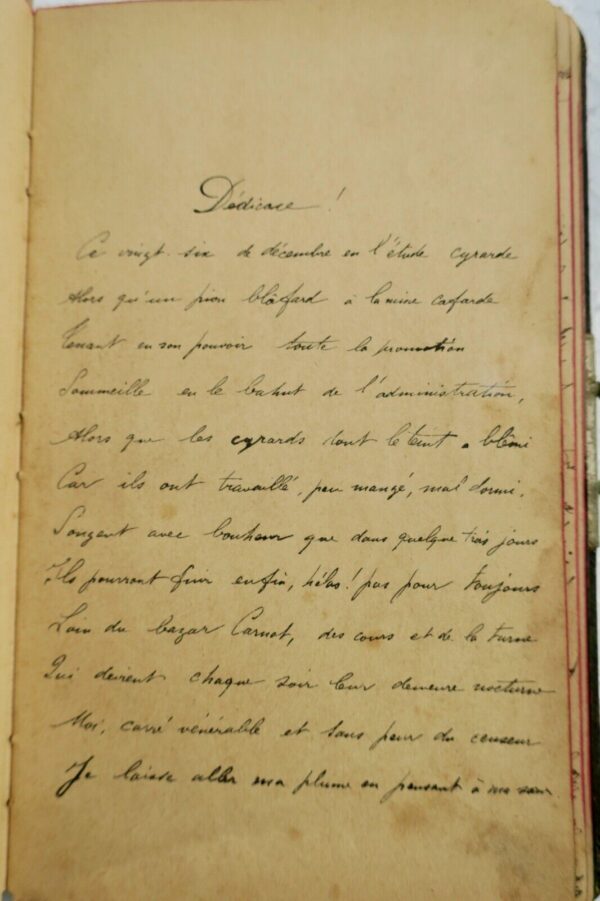 Dédicace !
Ce vingt-six de décembre en l'étude cyrarde
Alors qu'un pion blâfard à la mine cafarde
Tenant en son pouvoir toute la promotion
Sommeille en le bahut de l'administration,
Alors que les cyrards dont le teint a blêmi
Car ils ont travaillé, peu mangé, mal dormi.
Songent avec bonheur que dans quelque trois jours
Ils pourront fuir enfin, hélas! pas pour toujours
Loin du bazar Carnot, des cours et de la turne
Qui devient chaque soir leur demeure nocturne
Moi, carré vénérable et sans peur du censeur
Je laisse aller ma plume en pensant à ma sœur